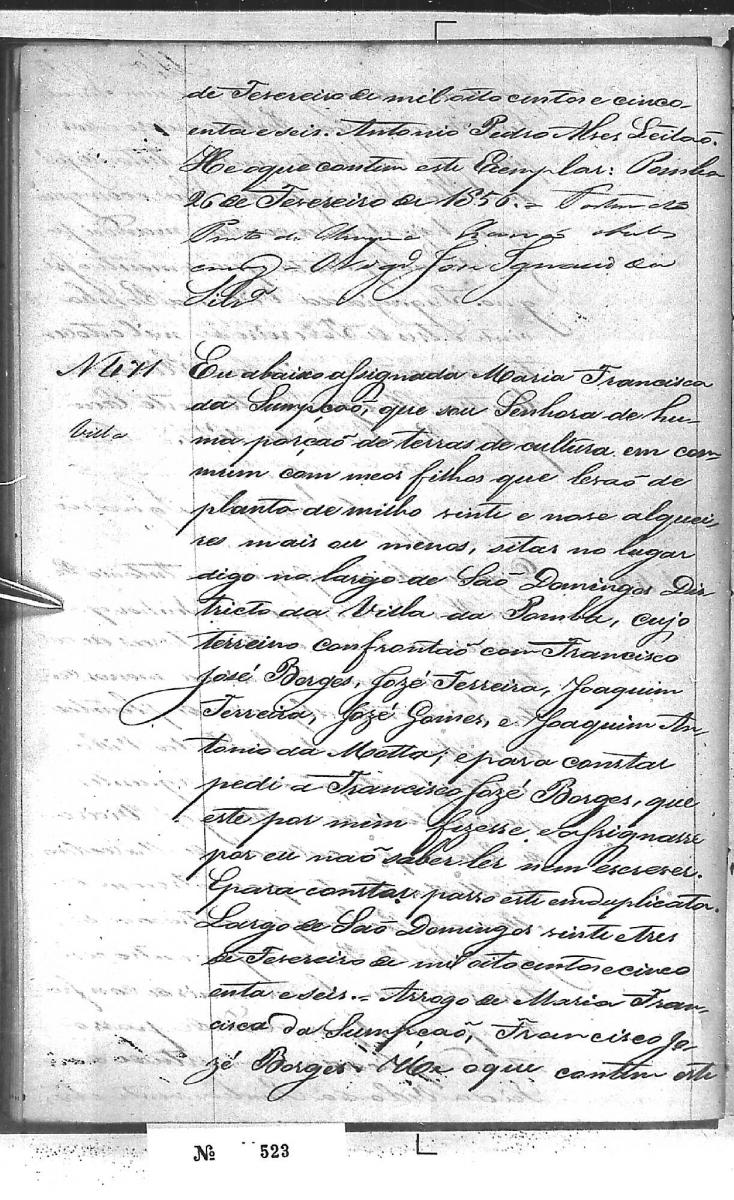 de Fevereiro de mil oito centos e cinco-
enta e seis. Antonio Pedro Alves Leitaõ.
He o que contem este Exemplar: Pomba
26 de Fevereiro de 1856. =
Pinto de
José Ignacio da
Silvª
Nº 471
Villa
Eu abaixo assignada Maria Francisca
da Sumpçaõ, que sou Senhora de hu-
ma porçaõ de terras de cultura em com-
mum com meos filhos que levaõ de
planta de milho vinte e nove alquei-
res mais ou menos, sitas no lugar
digo no largo de Saõ Domingos Dis-
tricto da Villa da Pomba, cujo
terreino confrontaõ com Francisco
José Borges, Jozé Ferreira, Joaquim
Ferreira, Jozé Gomes, e Joaquim An-
tonio da Motta, e para constar
pedi a Francisco Jozé Borges, que
este por mim fizesse e assignasse
por eu naõ saber ler nem escrever.
E para constar passo este em duplicata.
Largo de Saõ Domingos vinte e tres
de Fevereiro de mil oito centos e cinco
enta e seis. = Arrogo de Maria Fran-
cisca da Sumpçaõ, Francisco Jo-
zé Borges = He o que contem este
№ 523